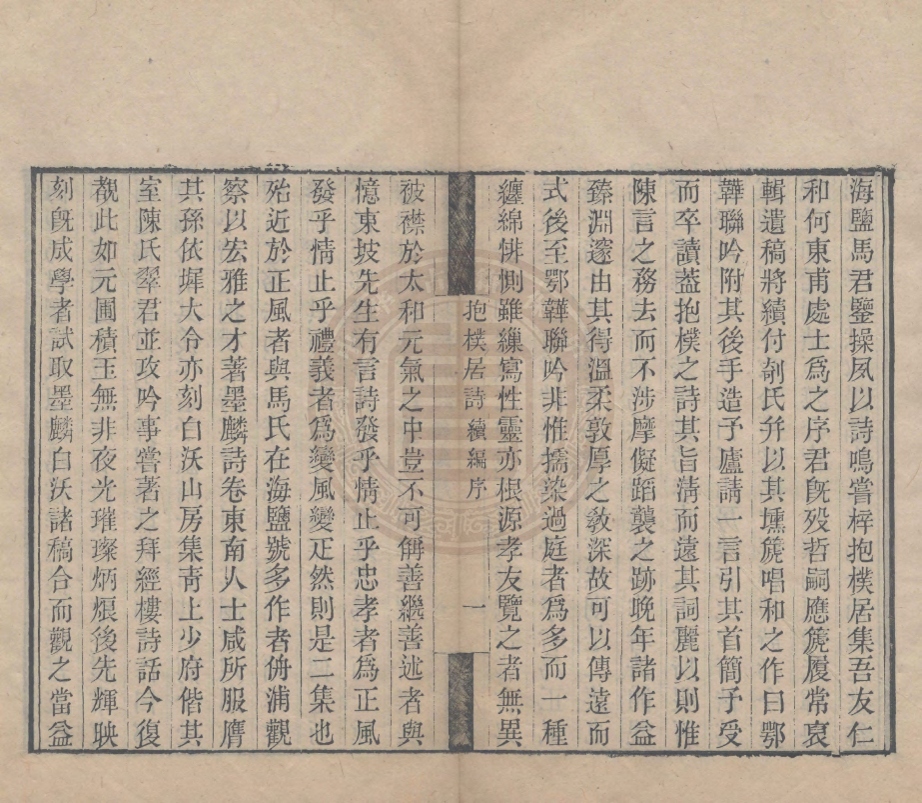 海鹽馬君鑒操夙以詩鳴嘗梓抱樸居集吾友仁
和何東甫處士爲之序君旣歿哲嗣應箎履常裒
輯遺稿將續付剞氏幷以其壎箎唱和之作曰鄂
韡聯吟附其後手造予廬請一言引其首簡予受
而卒讀蓋抱樸之詩其旨淸而遠其詞麗以則惟
陳言之務去而不涉摩儗蹈襲之跡晚年諸作益
臻淵邃由其得溫柔敦厚之敎深故可以傳遠而
式後至鄂韡聯吟非惟擩染過庭者爲多而一種
纏綿悱惻雖繅寫性靈亦根源孝友覽之者無異
抱樸居詩續編序 一
被襟於太和元氣之中豈不可偁善繼善述者與
憶東坡先生有言詩發乎情止乎忠孝者爲正風
發乎情止乎禮義者爲變風變正然則是二集也
殆近於正風者與馬氏在海鹽號多作者侜浦觀
察以宏雅之才著墨麟詩卷東南人士咸所服膺
其孫依墀大令亦刻白沃山房集靑上少府偕其
室陳氏翠君並攻吟事嘗著之拜經樓詩話今復
覩此如元圃積玉無非夜光璀璨炳烺後先輝映
刻旣成學者試取墨麟白沃諸稿合而觀之當益